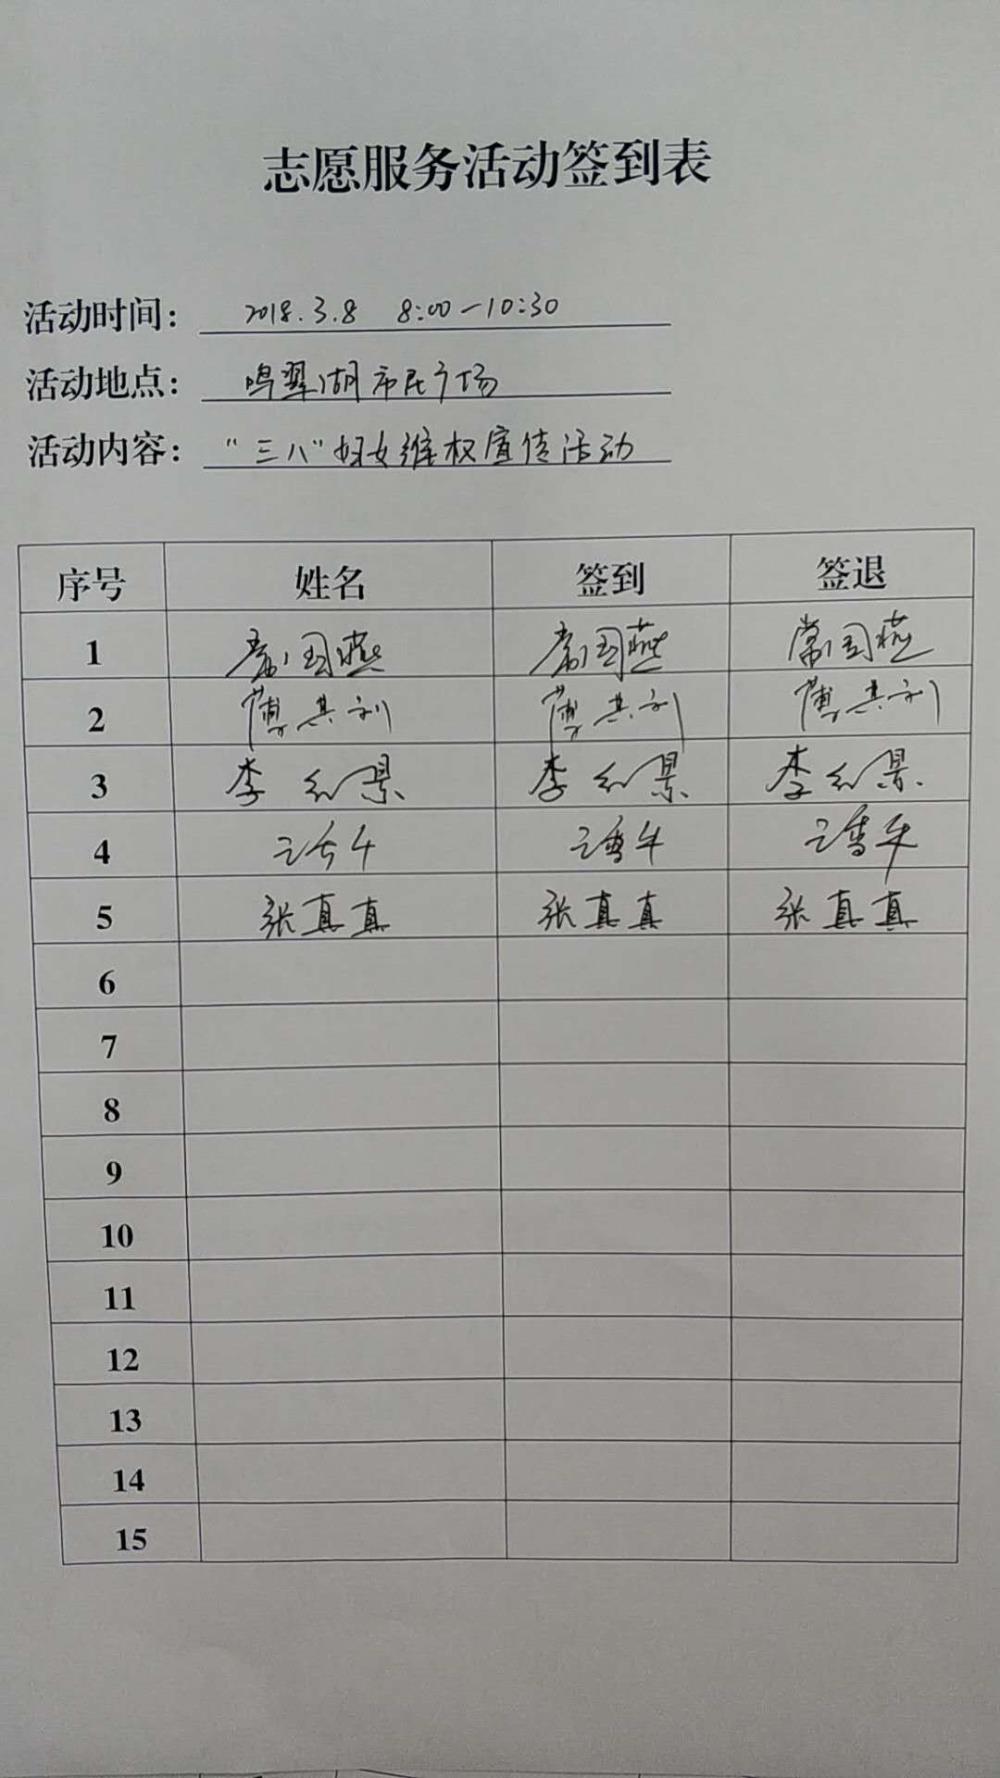 志愿服务活动签到表
活动时间： 2018.3.8 8:00—10:30
活动地点： 鸣翠湖市民广场
活动内容： “三八”妇女维权宣传活动
序号 姓名 签到 签退
1 常国燕 常国燕 常国燕
2 傅其利 傅其利 傅其利
3 李红景 李红景 李红景
4
5 张真真 张真真 张真真
6
7
8
9
10
11
12
13
14
15